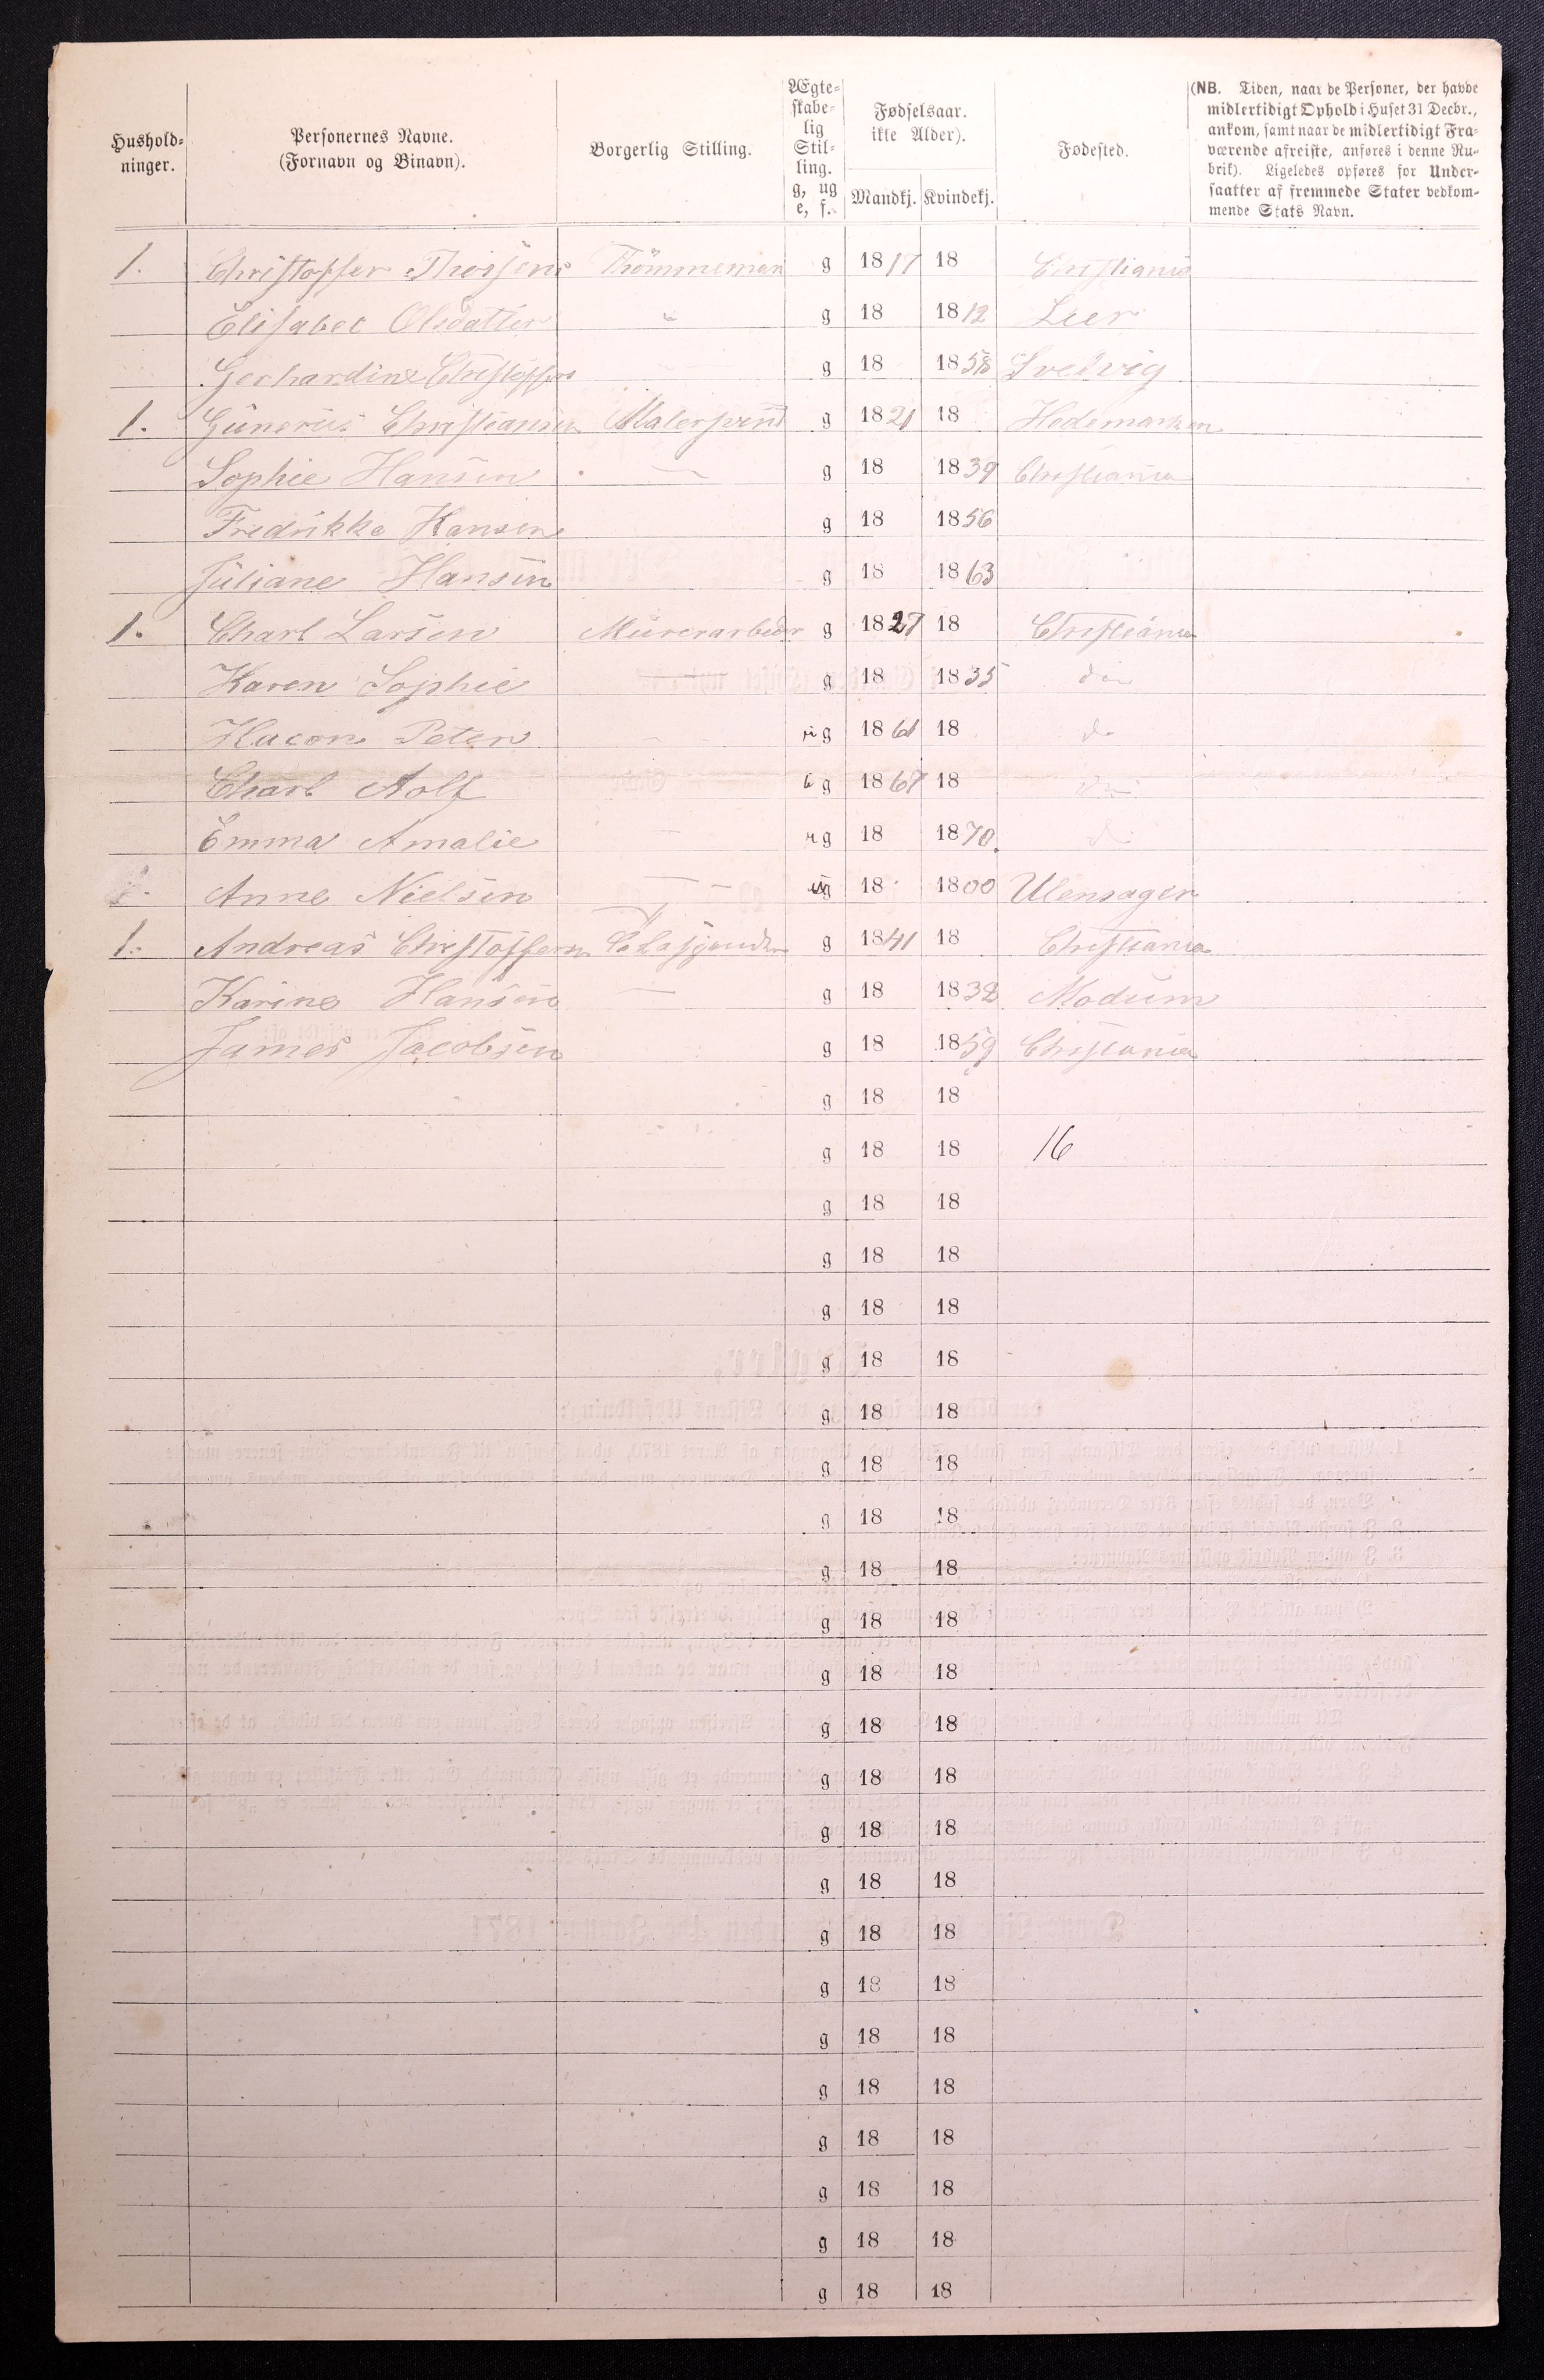 Hushold-
ninger.
Personernes Navne.
(Fornavn og Binavn).
Borgerlig Stilling.
Ægte-
skabe-
lig
Stil-
ling.
g, ug
e, f.
Fødselsaar.
ikke Alder).
Mandkj. Kvindekj.
Fødested.
(NB. Tiden, naar de Personer, der havde
midlertidigt Ophold i Huset 31 Decbr.,
ankom, samt naar de midlertidigt Fra-
værende afreiste, anføres i denne Ru-
brik). Ligeledes opføres for Under-
saatter af fremmede Stater vedkom-
mende Stats Navn.
1. Christoffer Thorsen Thömmeman g 1817 18 Christiania
Elisabet Olsdatter g 18 1812 Leer
Gerhardine Christoffers g 18 1858 Svelvig
1. Günerüs Christiansen Malersvend g 1821 18 Hedemarken
Sophie Hansen — g 18 1839 Christiania
Fredrikke Hansen g 18 1856
Juliane Hansen g 18 1863
1. Charl Larsen Mürerarbeder g 1827 18 Christiania
Karen Sophie g 18 1835 do
Hacon Peter ug 1861 18 do
Charl Aolf ug 1867 18 do
Emma Amalie ug 18 1870. do
Anne Nielsen — ug 18 1800 Ulensager
1. Andreas Christoffersen g 1841 18 Christiania
Karine Hansen — g 18 1832 Modum
James Jacobsen g 18 1859 Christiania
g 18 18
g 18 18 16
g 18 18
g 18 18
g 18 18
g 18 18
g 18 18
g 18 18
g 18 18
g 18 18
g 18 18
g 18 18
g 18 18
g 18 18
g 18 18
g 18 18
g 18 18
g 18 18
g 18 18
g 18 18
g 18 18
g 18 18
g 18 18
g 18 18